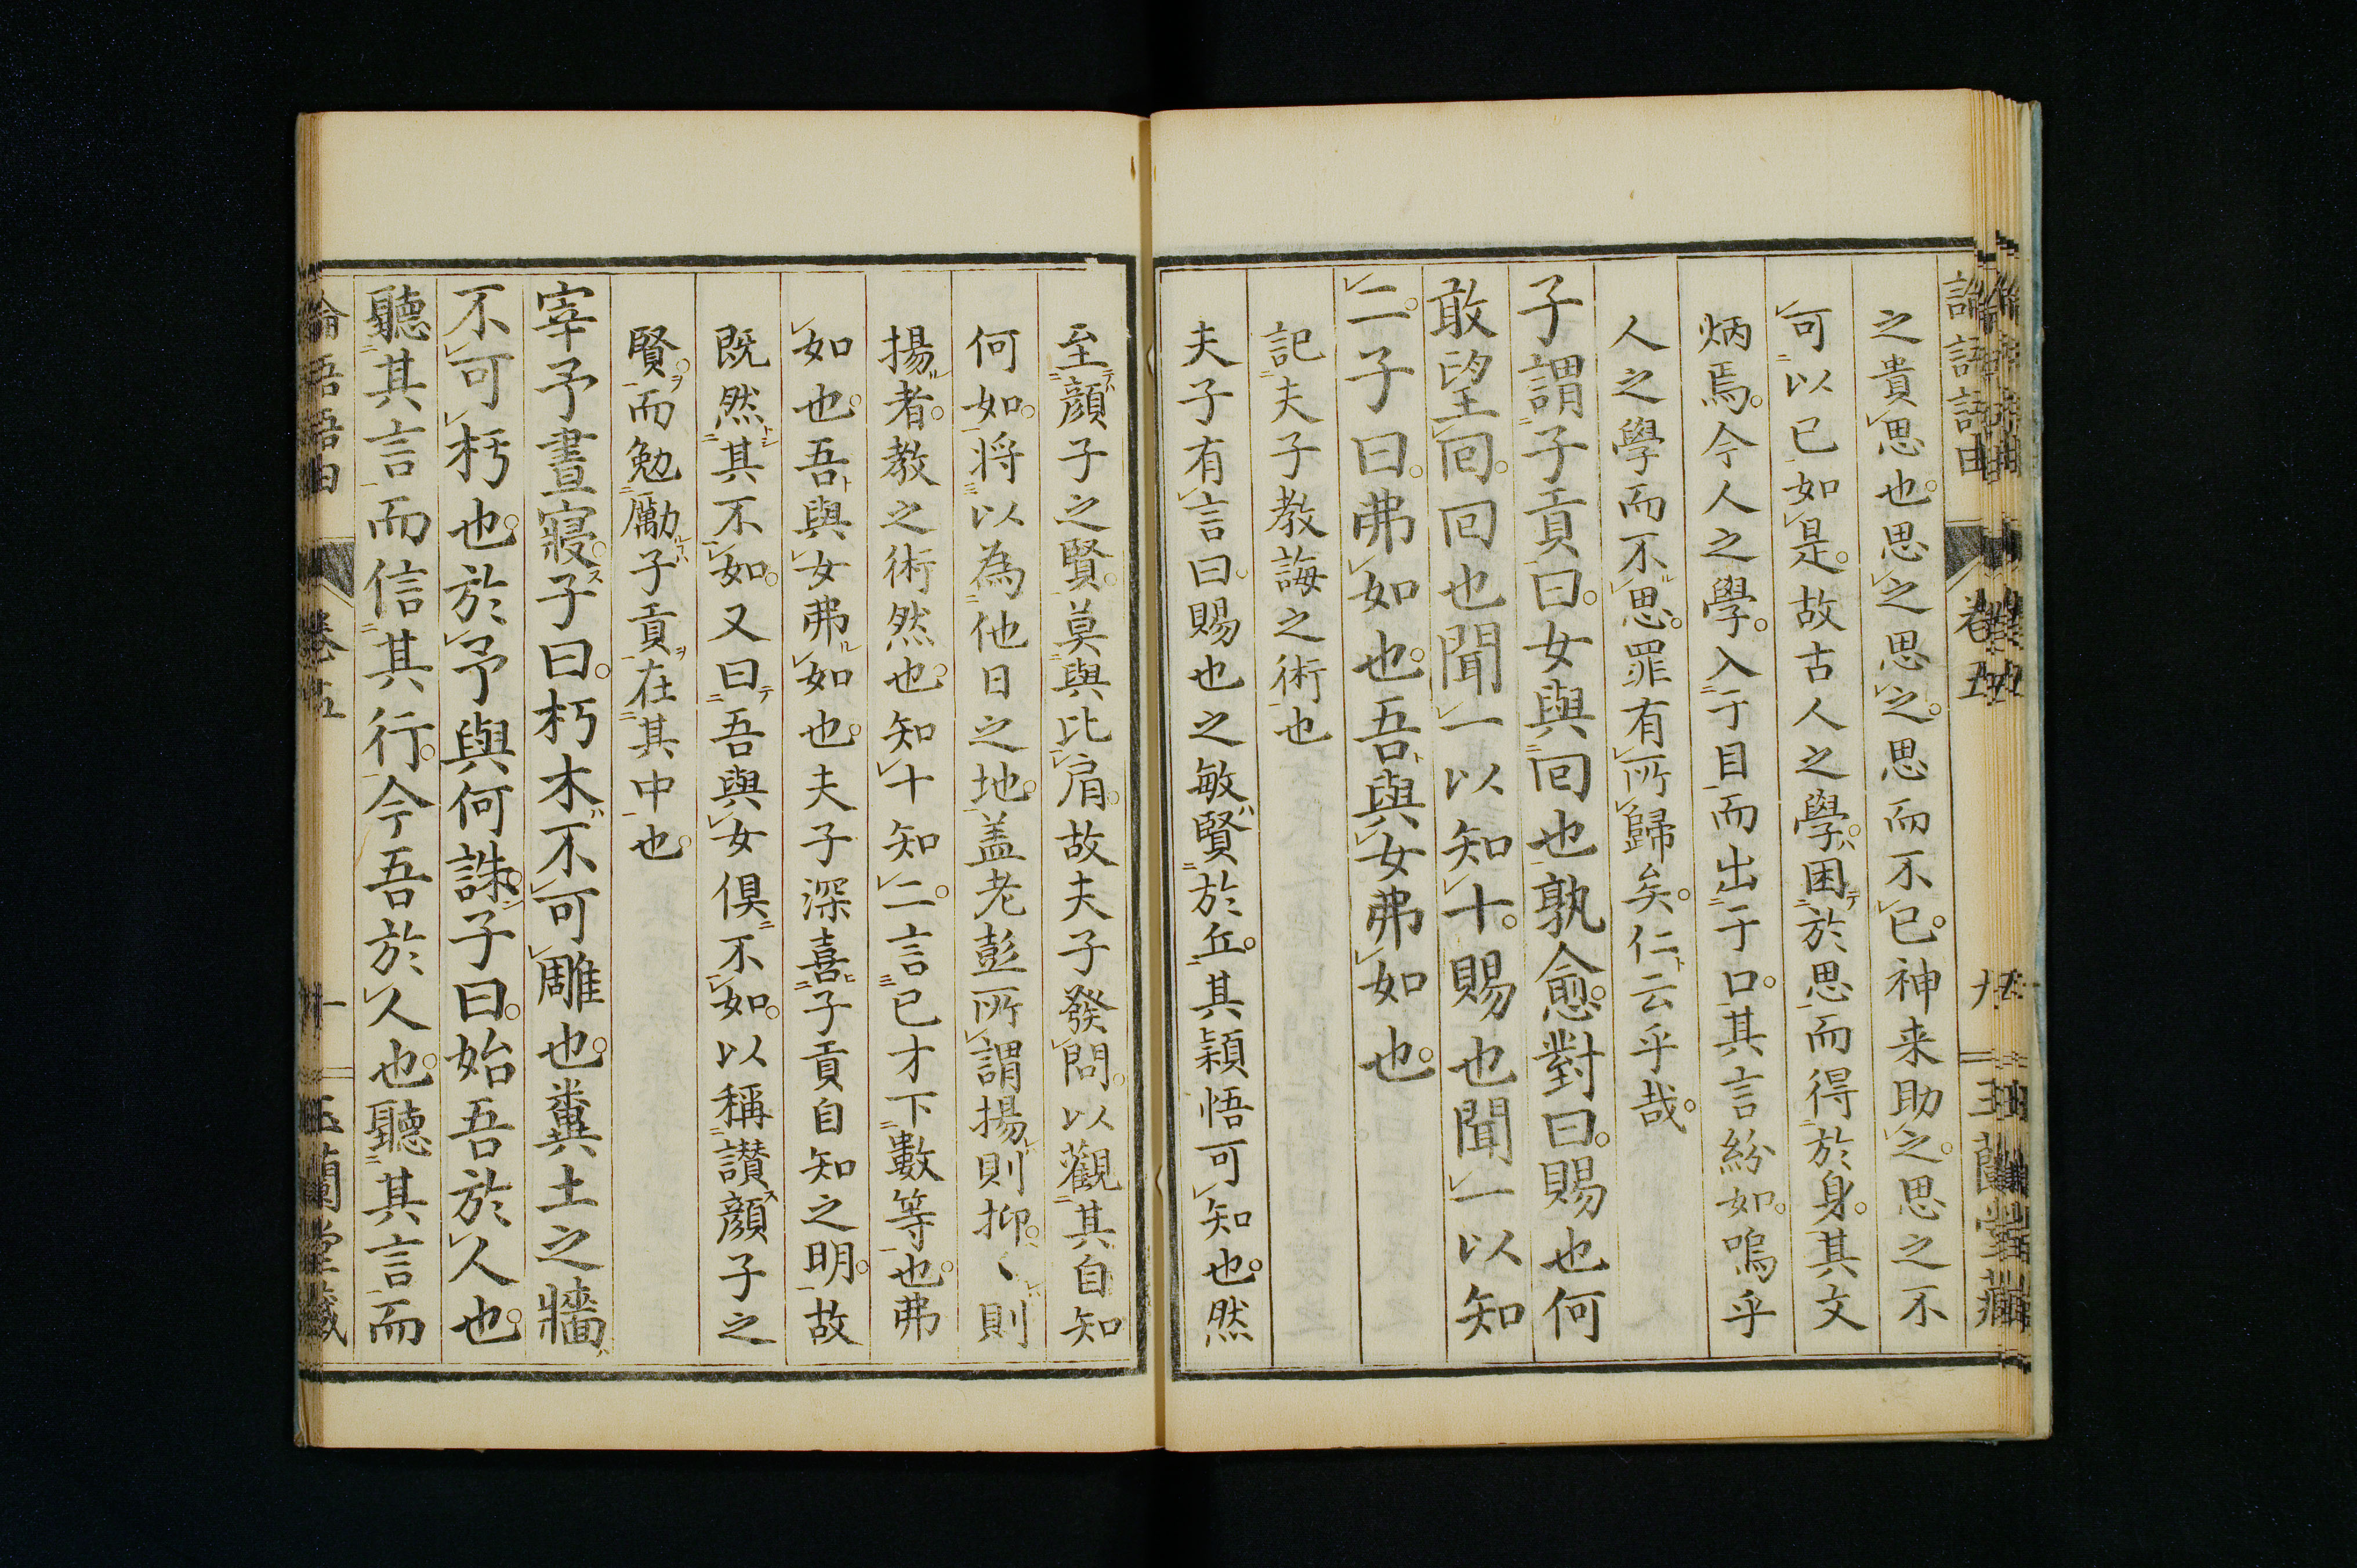 之貴思也思之思之思而不已神来助之思之不
可以已如是故古人之學困於思而得於身其文
炳焉今人之學入于目而出于口其言紛如嗚乎
人之學而不思罪有所歸矣仁云乎哉
子謂子貢曰女與回也孰愈對曰賜也何
敢望回回也聞一以知十賜也聞一以知
二子曰弗如也吾與女弗如也
記夫子教誨之術也
夫子有言曰賜也之敏賢於丘其穎悟可知也然
至顔子之賢莫與比肩故夫子發問以觀其自知
何如将以為他日之地盖老彭所謂揚則抑〻則
揚者教之術然也知十知二言已才下數等也弗
如也吾與女弗如也夫子深喜子貢自知之明故
既然其不如又曰吾與女俱不如以稱讃顔子之
賢而勉勵子貢在其中也
宰予晝寢子曰朽木不可雕也糞土之牆
不可杇也於予與何誅子曰始吾於人也
聽其言而信其行今吾於人也聽其言而
論語語由 卷五 十 玉蘭堂藏